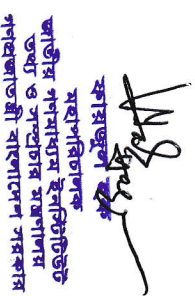 মহাপরিচালক
জাতীয় গণমাধ্যম ইনস্টিটিউট
তথ্য ও সম্প্রচার মন্ত্রণালয়
গণপ্রজাতন্ত্রী বাংলাদেশ সরকার